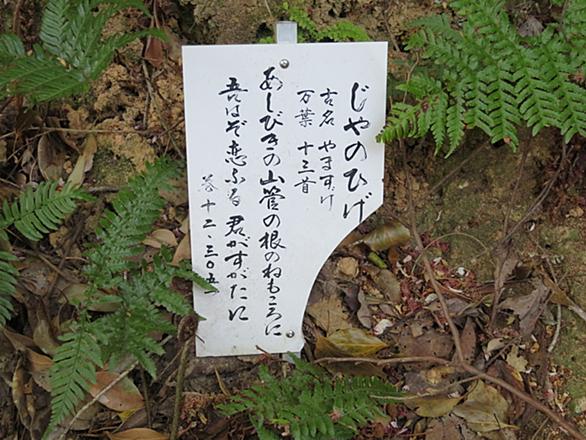 じゃのひげ
古名 やますげ
万葉 十三首
あしびきの山菅の根のねもころに
吾はぞ恋ふる君がすがたに
巻十二・三〇五一